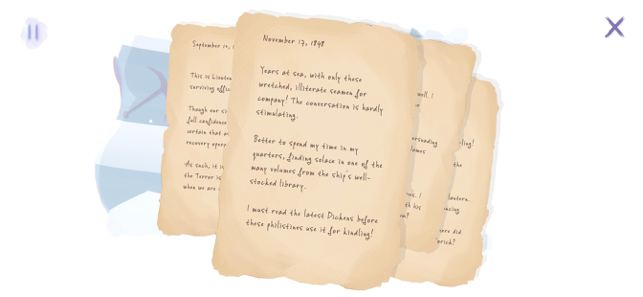 November 17, 1848
Years at sea, with only these
wretched, illiterate seamen for
company! The conversation is hardly
stimulating.
Better to spend my time in my
quarters, finding solace in one of the
many volumes from the ship's well-
stocked library.
I must read the latest Dickens before
these philistines use it for kindling!
September
This is
surviving
Though our
full confidence
certain that
recovery
As such, it is
the Terror is
when we are
well. I
the
volumes
I
with his
lantern.
did